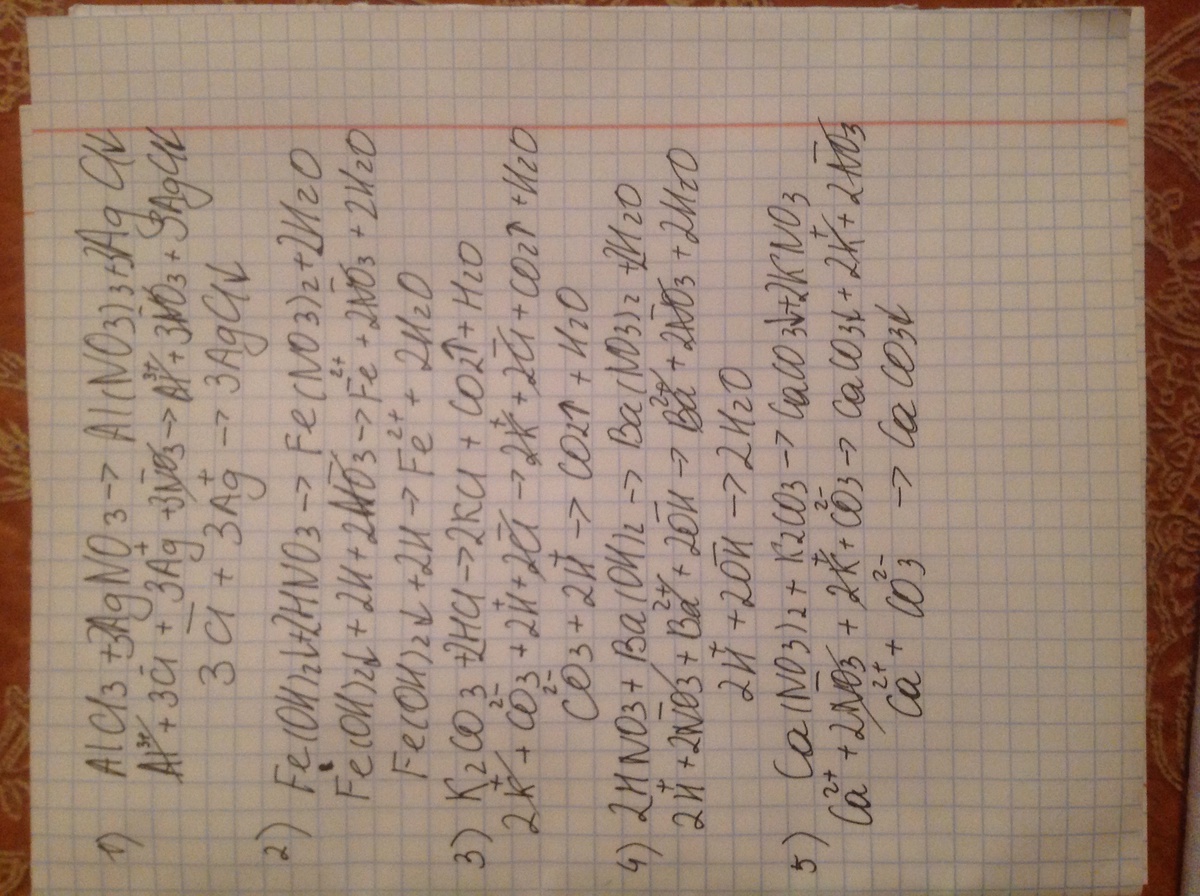 1) AlCl3 + 3AgNO3 → Al(NO3)3 + 3AgCl↓
Al³⁺ + 3Cl⁻ + 3Ag⁺ + 3NO3⁻ → Al³⁺ + 3NO3⁻ + 3AgCl↓
3Cl⁻ + 3Ag⁺ → 3AgCl↓
2) Fe(OH)2↓ + 2HNO3 → Fe(NO3)2 + 2H2O
Fe(OH)2↓ + 2H + 2NO3⁻ → Fe²⁺ + 2NO3⁻ + 2H2O
Fe(OH)2↓ + 2H → Fe²⁺ + 2H2O
3) K2CO3 + 2HCl → 2KCl + CO2↑ + H2O
2K⁺ + CO3²⁻ + 2H⁺ + 2Cl⁻ → 2K⁺ + 2Cl⁻ + CO2↑ + H2O
CO3²⁻ + 2H⁺ → CO2↑ + H2O
4) 2HNO3 + Ba(OH)2 → Ba(NO3)2 + 2H2O
2H⁺ + 2NO3⁻ + Ba²⁺ + 2OH⁻ → Ba²⁺ + 2NO3⁻ + 2H2O
2H⁺ + 2OH⁻ → 2H2O
5) Ca(NO3)2 + K2CO3 → CaCO3↓ + 2KNO3
Ca²⁺ + 2NO3⁻ + 2K⁺ + CO3²⁻ → CaCO3↓ + 2K⁺ + 2NO3⁻
Ca²⁺ + CO3²⁻ → CaCO3↓